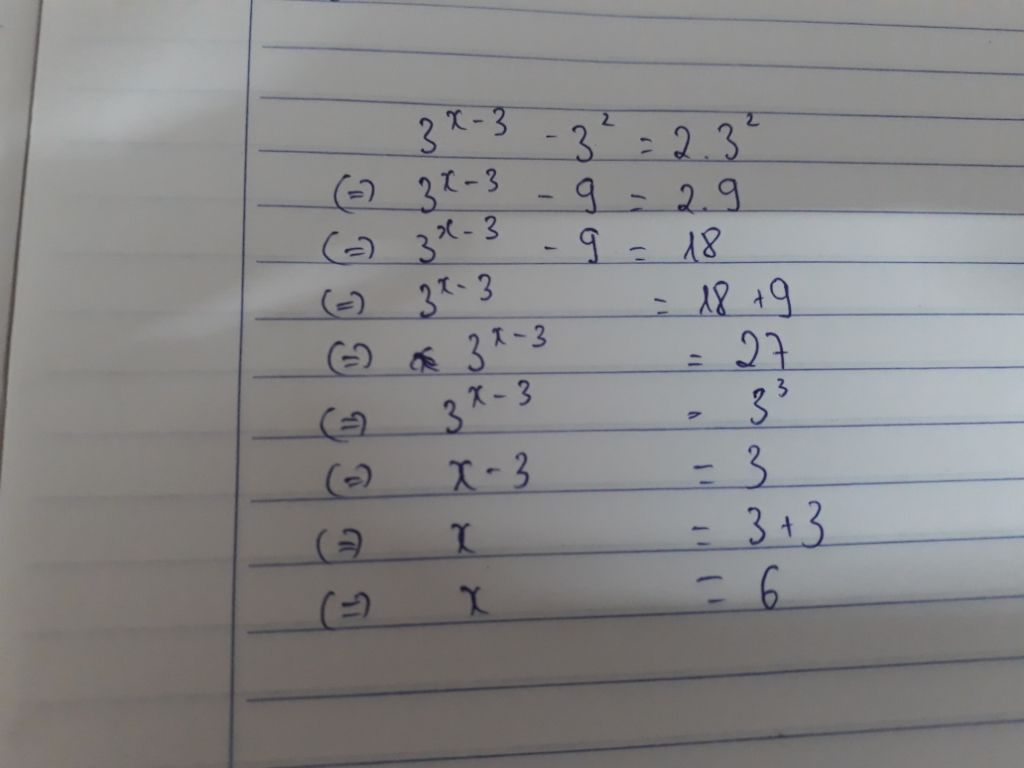 3^{x-3} - 3^2 = 2.3^2
(=) 3^{x-3} - 9 = 2.9
(=) 3^{x-3} - 9 = 18
(=) 3^{x-3} = 18 + 9
(=) 3^{x-3} = 27
(=) 3^{x-3} = 3^3
(=) x - 3 = 3
(=) x = 3 + 3
(=) x = 6